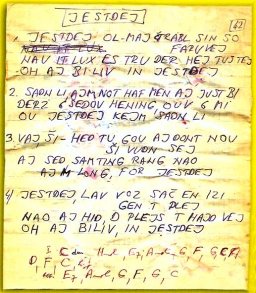 JESTDEJ
62
1. JESTDEJ OL-MAJ TRABL SIN SO
FARUVEJ
NAU IT LUX ES TRU DER HEJ TU STEJ
OH AJ BILIV IN JESTDEJ
2. SADN LI AJM NOT HAF MEN AJ JUST BI
DERZ E ŠEDOU HENING OUV R MI
OU JESTDEJ KEJM SADN LI
3. VAJ ŠI-HED TU GOU AJ DONT NOU
ŠI VUDN SEJ
AJ SED SAMTING RANG NAO
AJ LONG, FOR JESTDEJ
4) JESTDEJ, LAV VOZ SAČ EN IZI
GEN T PLEJ
NAO AJ NID, D PLEJS T HAJD VEJ
OH AJ BILIV, IN JESTDEJ
G, F, G, C